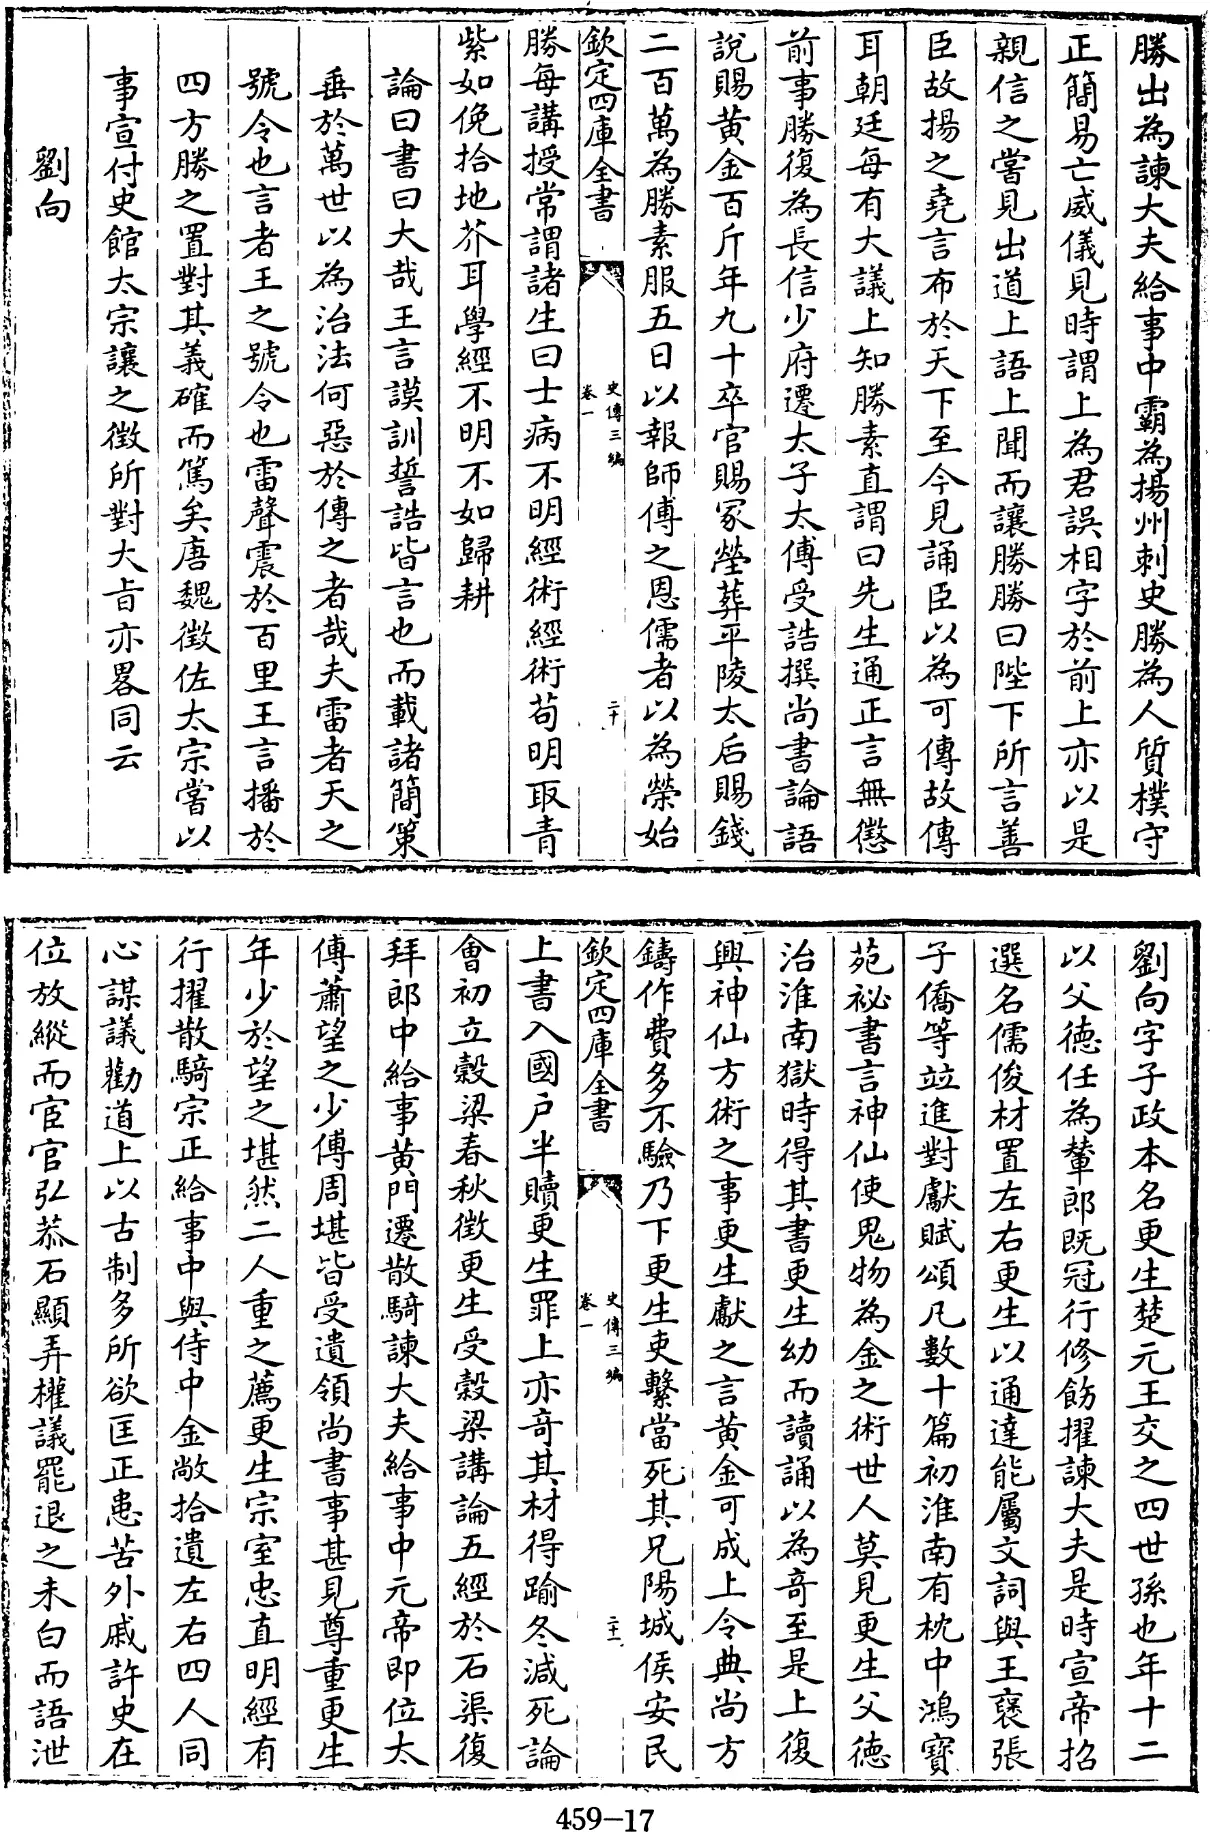 勝出為諫大夫給事中霸為揚州刺史勝為人質樸守
正簡易亡威儀見時謂上為君誤相字於前上亦以是
親信之嘗見出道上語上聞而讓勝勝曰陛下所言善
臣故揚之堯言布於天下至今見誦臣以為可傳故傳
耳朝廷每有大議上知勝素直謂曰先生通正言無懲
前事勝復為長信少府遷太子太傅受詔撰尚書論語
說賜黃金百斤年九十卒官賜冢塋葬平陵太后賜錢
二百萬為勝素服五日以報師傅之恩儒者以為榮始
欽定四庫全書
史傳三編
卷一
二十
勝每講授常謂諸生曰士病不明經術經術苟明取青
紫如俛拾地芥耳學經不明不如歸耕
論曰書曰大哉王言謨訓誓誥皆言也而載諸簡策
垂於萬世以為治法何惡於傳之者哉夫雷者天之
號令也言者王之號令也雷聲震於百里王言播於
四方勝之置對其義確而篤矣唐魏徵佐太宗嘗以
事宣付史館太宗讓之徵所對大旨亦畧同云
劉向
劉向字子政本名更生楚元王交之四世孫也年十二
以父德任為輦郎既冠行修飭擢諫大夫是時宣帝招
選名儒俊材置左右更生以通達能屬文詞與王襃張
子僑等竝進對獻賦頌凡數十篇初淮南有枕中鴻寶
苑祕書言神仙使鬼物為金之術世人莫見更生父德
治淮南獄時得其書更生幼而讀誦以為奇至是上復
興神仙方術之事更生獻之言黃金可成上令典尚方
鑄作費多不驗乃下更生吏繫當死其兄陽城侯安民
欽定四庫全書
史傳三編
卷一
二十一
上書入國戶半贖更生罪上亦奇其材得踰冬減死論
會初立穀梁春秋徵更生受穀梁講論五經於石渠復
拜郎中給事黃門遷散騎諫大夫給事中元帝即位太
傅蕭望之少傅周堪皆受遺領尚書事甚見尊重更生
年少於望之堪然二人重之薦更生宗室忠直明經有
行擢散騎宗正給事中與侍中金敞拾遺左右四人同
心謀議勸道上以古制多所欲匡正患苦外戚許史在
位放縱而宦官弘恭石顯弄權議罷退之未白而語泄
459-17